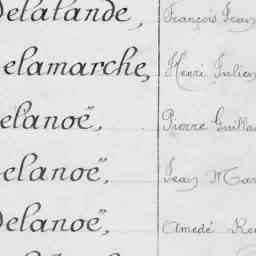 Delalande, François Jean
Delamarche, Henri Julien
Delanoë, Pierre Guillau
Delanoë, Jean Mar
Delanoë, Amedé Re